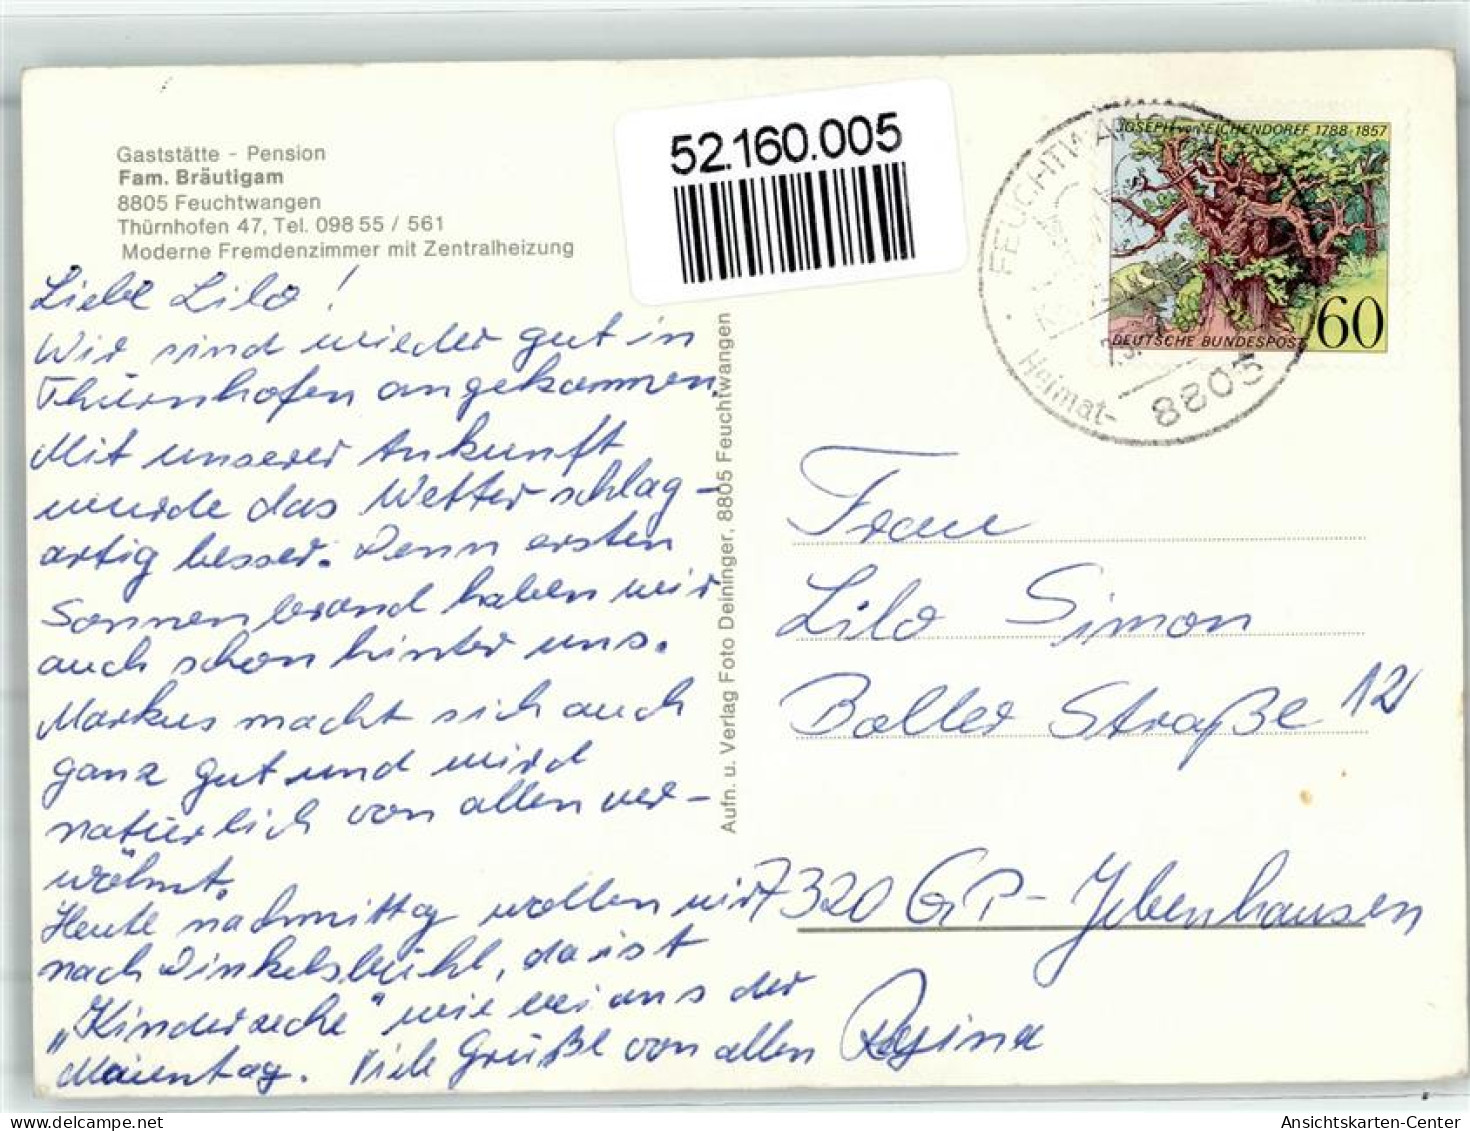 Gaststätte - Pension
Fam. Bräutigam
8805 Feuchtwangen
Thürnhofen 47, Tel. 098 55 / 561
Moderne Fremdenzimmer mit Zentralheizung
52.160.005
JOSEPH von EICHENDORFF 1788-1857
DEUTSCHE BUNDESPOST
60
FEUCHTWANGEN
Heimat-
8805
Liebe Lilo!
Wir sind wieder gut in
Thürnhofen angekommen.
Mit unserer Ankunft
wurde das Wetter schlag-
artig besser. Denn ersten
Sonnenbrand haben wir
auch schon hinter uns.
Markus macht sich auch
ganz gut und wird
natürlich von allen ver-
wöhnt.
Heute nachmittag wollen wir
nach Dinkelsbühl, da ist
„Kinderzeche" wie bei uns der
Maientag. Viele Grüße von allen Regina
Aufn. u. Verlag Foto Deininger, 8805 Feuchtwangen
Frau
Lilo Simon
Boller Straße 12
7320 GP-Jebenhausen
Ansichtskarten-Center